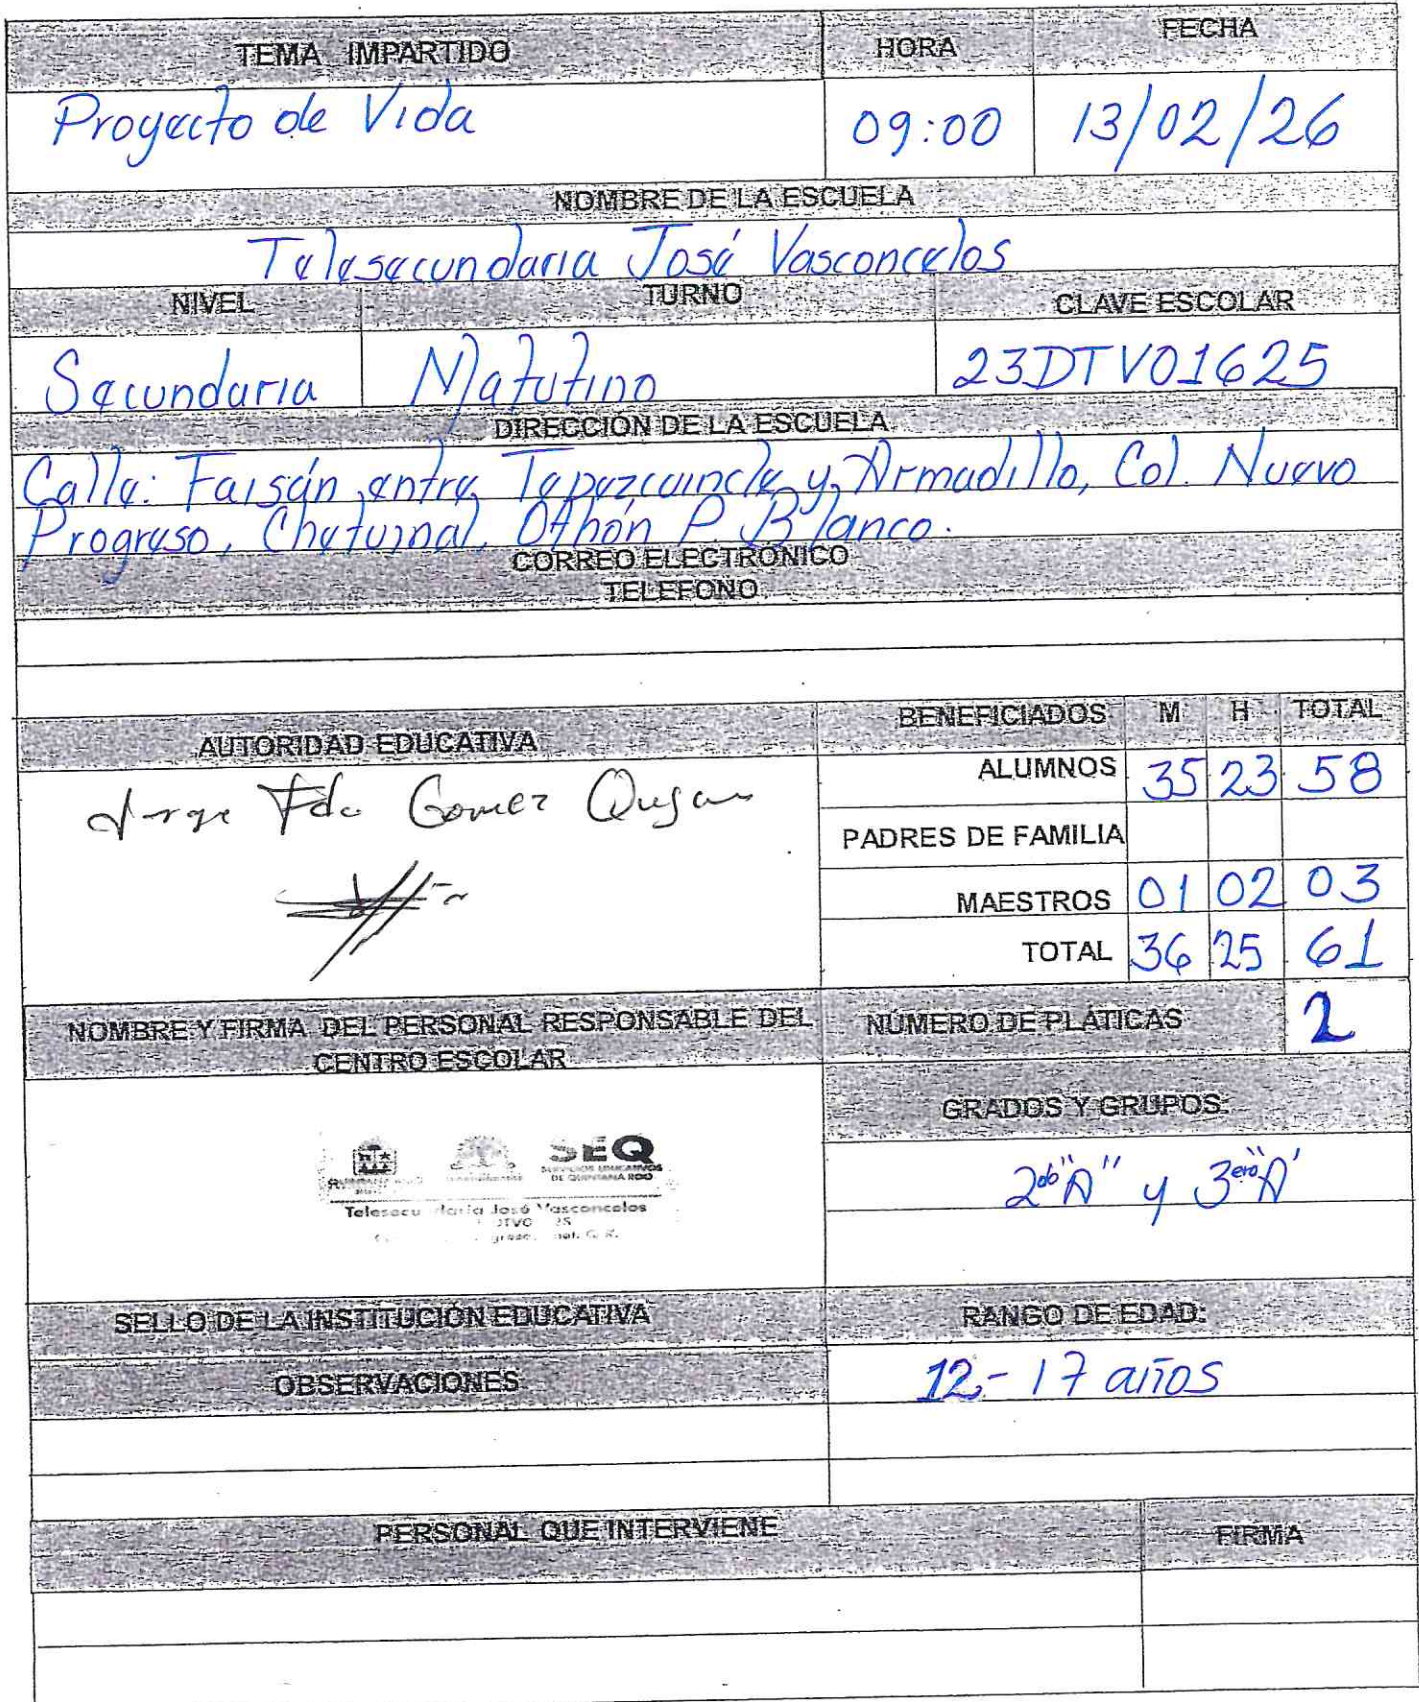 TEMA IMPARTIDO HORA FECHA
Proyecto de Vida 09:00 13/02/26
NOMBRE DE LA ESCUELA
Telesecundaria José Vasconcelos
NIVEL TURNO CLAVE ESCOLAR
Secundaria Matutino 23DTV01625
DIRECCIÓN DE LA ESCUELA
Calle: Faisán entre Tepezcuincle y Armadillo, Col. Nuevo
Progreso, Chetumal, Othón P. Blanco.
CORREO ELECTRÓNICO
TELEFONO
AUTORIDAD EDUCATIVA BENEFICIADOS M H TOTAL
Jorge Fdo Gomez
ALUMNOS 35 23 58
PADRES DE FAMILIA
MAESTROS 01 02 03
TOTAL 36 25 61
NOMBRE Y FIRMA DEL PERSONAL RESPONSABLE DEL
CENTRO ESCOLAR
NÚMERO DE PLÁTICAS 2
GRADOS Y GRUPOS:
2do "A" y 3ero "A"
SEQ
SERVICIOS EDUCATIVOS
DE QUINTANA ROO
José Vasconcelos
SELLO DE LA INSTITUCIÓN EDUCATIVA RANGO DE EDAD:
OBSERVACIONES 12.- 17 años
PERSONAL QUE INTERVIENE FIRMA